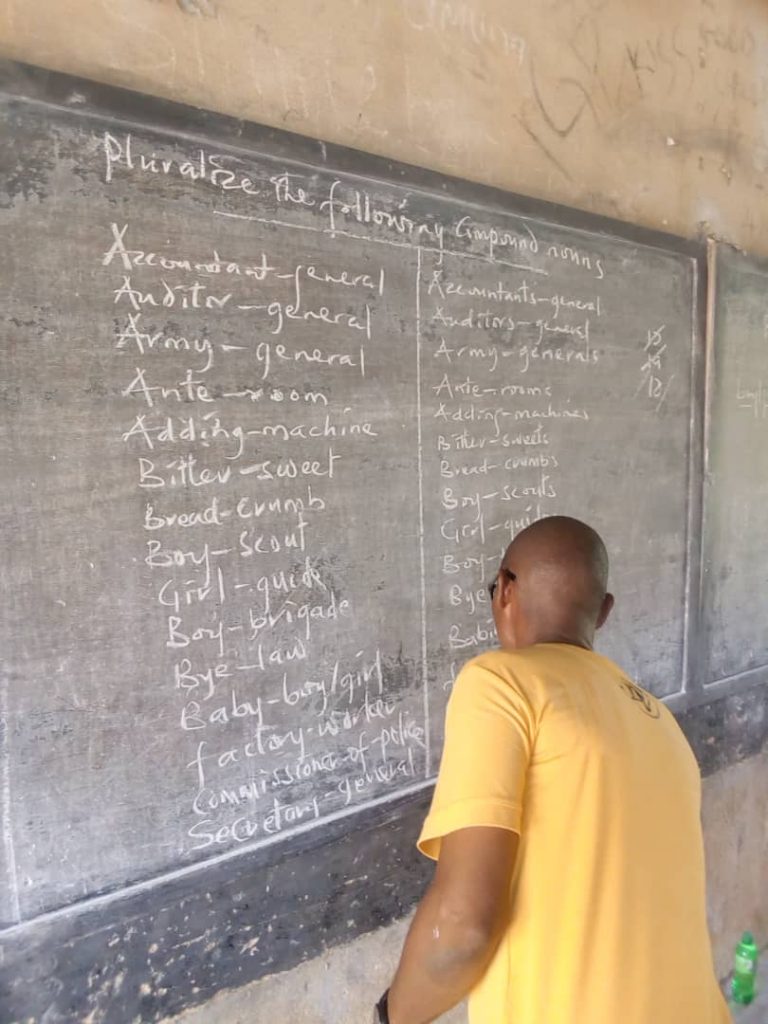 Pluralize the following Compound nouns
Accountant-general
Auditor-general
Army-general
Ante-room
Adding-machine
Bitter-sweet
Bread-crumb
Boy-scout
Girl-guide
Boy-brigade
Bye-law
Baby-boy/girl
factory-worker
Commissioner-of-police
Secretary-general
Accountants-general
Auditors-general
Army-generals
Ante-rooms
Adding-machines
Bitter-sweets
Bread-crumbs
Boy-scouts
Girl-guide
Boy-
Bye
Babi